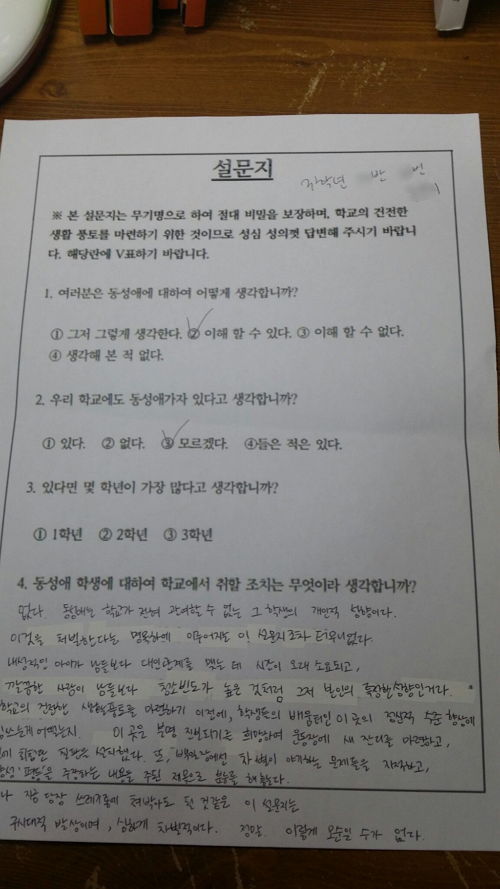 설문지
3학년 반 번
※ 본 설문지는 무기명으로 하여 절대 비밀을 보장하며, 학교의 건전한
생활 풍토를 마련하기 위한 것이므로 성심 성의껏 답변해 주시기 바랍니
다. 해당란에 V표하기 바랍니다.
1. 여러분은 동성애에 대하여 어떻게 생각합니까?
① 그저 그렇게 생각한다. ② 이해 할 수 있다. ③ 이해 할 수 없다.
④ 생각해 본 적 없다.
2. 우리 학교에도 동성애가자 있다고 생각합니까?
① 있다. ② 없다. ③ 모르겠다. ④들은 적은 있다.
3. 있다면 몇 학년이 가장 많다고 생각합니까?
① 1학년 ② 2학년 ③ 3학년
4. 동성애 학생에 대하여 학교에서 취할 조치는 무엇이라 생각합니까?
없다. 동성애는 학교가 전혀 관여할 수 없는 그 학생의 개인적 성향이다.
이것을 처벌한다는 명목하에 이루어지는 이 설문지조차 터무니없다.
내성적인 아이가 남들보다 대인관계를 맺는 데 시간이 오래 소요되고,
깔끔한 사람이 남들보다 청소빈도가 높은 것처럼 그저 본인의 특징한성향인거다.
학교의 건전한 생활풍토를 마련하기 이전에, 학생들의 배움터인 이 곳의 정신적 수준 향상에
힘쓰는게 어떻는지. 이 곳은 북면 진보되기를 희망하여 운동장에 새 잔디를 마련하고,
설치했다. 또, 차별이 야기하는 문제들을 지적하고,
'평등'을 주장하는 내용을 주된 제목으로
지금 당장 쓰레기통에 쳐박아도 될 것같은 이 설문지는
구시대적 발상이며, 심하게 차별적이다. 정말 이렇게 모순일 수가 없다.